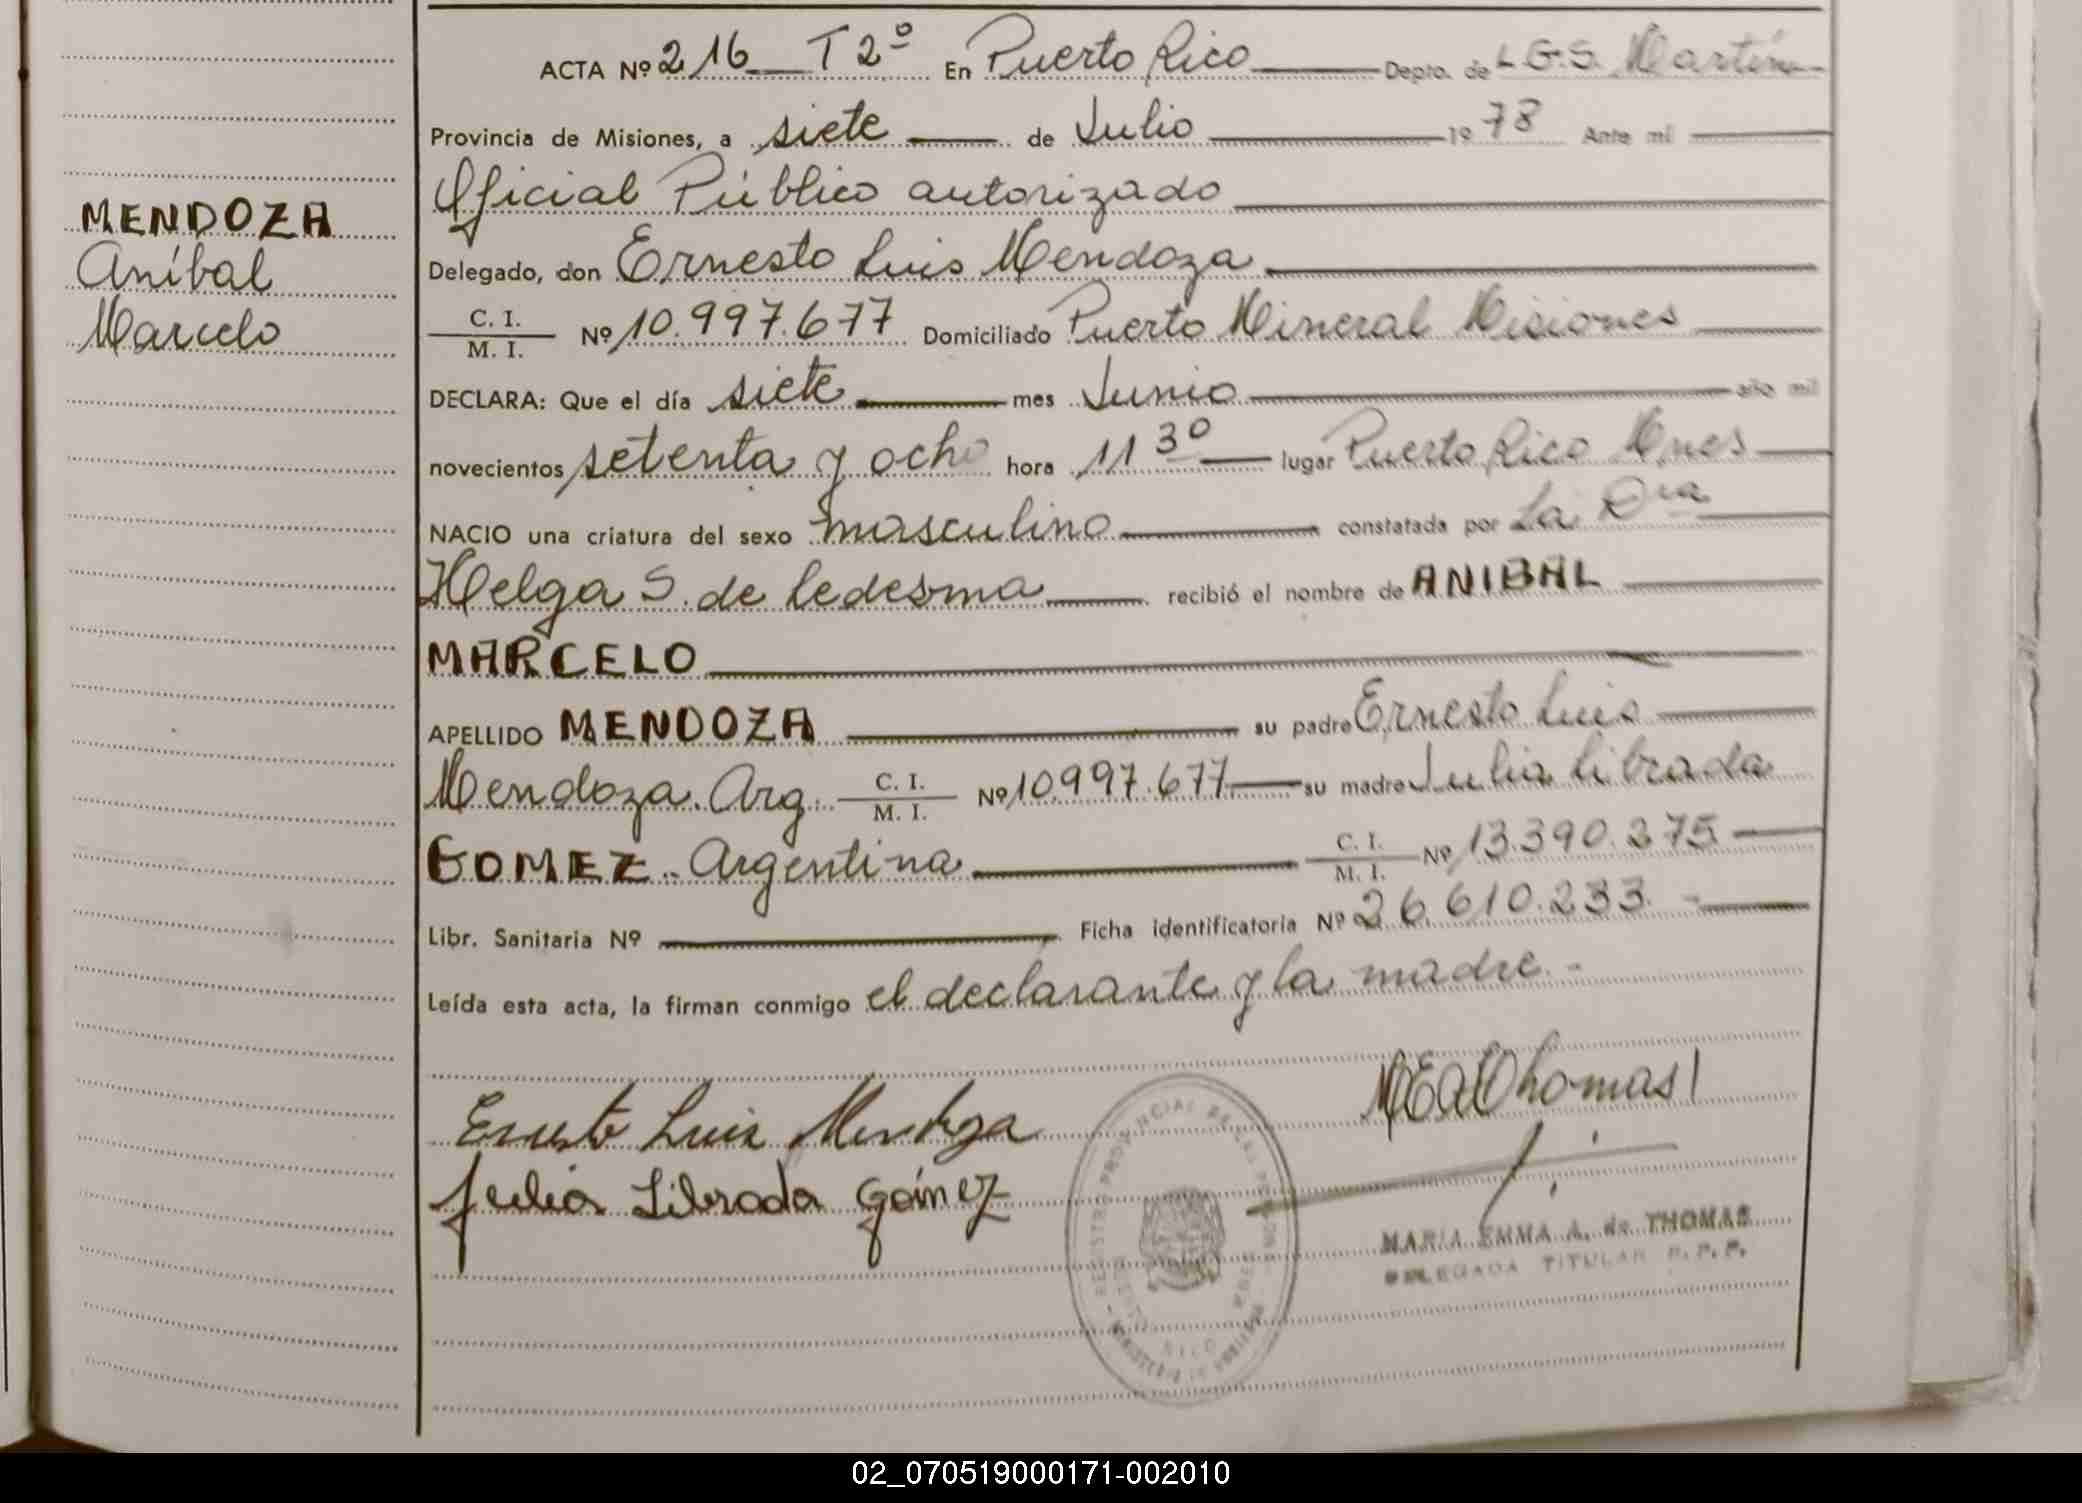 ACTA Nº 216 T 2º En Puerto Rico Depto. de L.G.S. Martín
Provincia de Misiones, a siete de Julio 1978 Ante mí
Oficial Público autorizado
Delegado, don Ernesto Luis Mendoza
C. I. / M. I. Nº 10.997.677 Domiciliado Puerto Mineral Misiones
DECLARA: Que el día siete mes Junio año mil
novecientos setenta y ocho hora 11 30 lugar Puerto Rico Mnes
NACIO una criatura del sexo masculino constatada por La Dra
Helga S. de Ledesma recibió el nombre de ANIBAL
MARCELO
APELLIDO MENDOZA su padre Ernesto Luis
Mendoza. Arg. C. I. / M. I. Nº 10.997.677 su madre Julia Librada
GOMEZ - Argentina C. I. / M. I. Nº 13.390.275
Libr. Sanitaria Nº Ficha identificatoria Nº 26.610.233.-
Leída esta acta, la firman conmigo el declarante y la madre.-
MENDOZA
Aníbal
Marcelo
Ernesto Luis Mendoza
Julia Librada Gómez
MEAThomas
MARIA EMMA A. de THOMAS
DELEGADA TITULAR R. P. P.
REGISTRO PROVINCIAL DE LAS PERSONAS
02_070519000171-002010